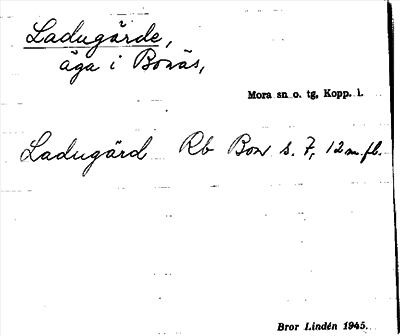 Ladugärde,
äga i Bonäs,
Mora sn o. tg, Kopp. l.
Ladugärd Rb Bon s. 7, 12 m. fl.
Bror Lindén 1945.